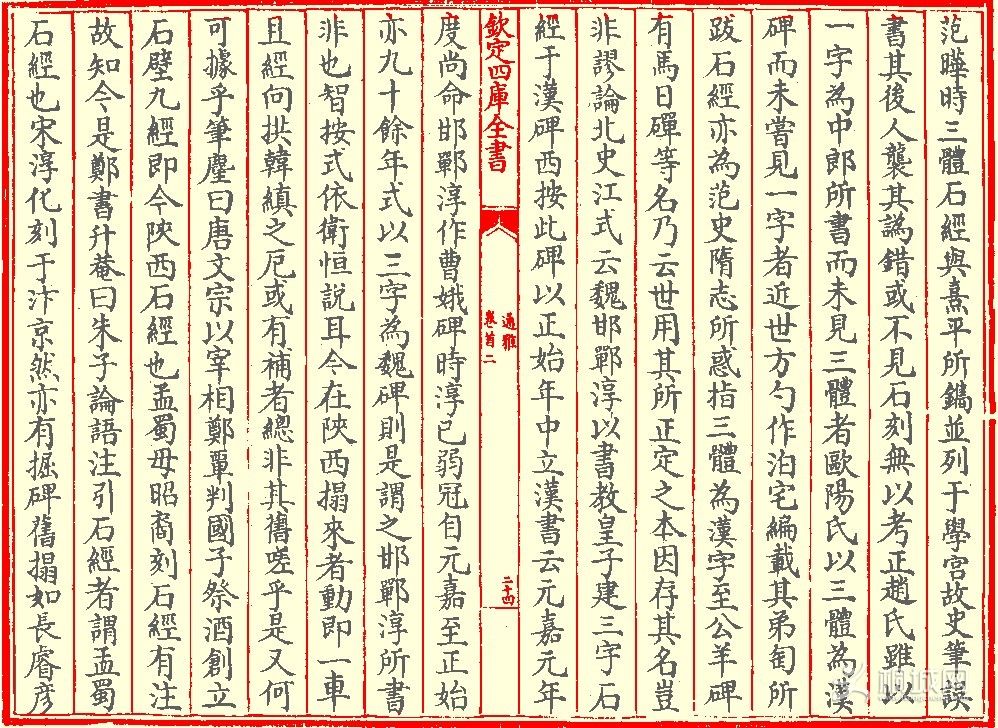 范曄時三體石經與熹平所鐫並列于學宮故史筆誤
書其後人襲其譌錯或不見石刻無以考正趙氏雖以
一字為中郎所書而未見三體者歐陽氏以三體為漢
碑而未嘗見一字者近世方勺作泊宅編載其弟匋所
跋石經亦為范史隋志所惑指三體為漢字至公羊碑
有馬日磾等名乃云世用其所正定之本因存其名豈
非謬論北史江式云魏邯鄲淳以書教皇子建三字石
經于漢碑西按此碑以正始年中立漢書云元嘉元年
欽定四庫全書
通雅
卷首二
二十四
度尚命邯鄲淳作曹娥碑時淳已弱冠自元嘉至正始
亦九十餘年式以三字為魏碑則是謂之邯鄲淳所書
非也智按式依衛恒説耳今在陜西搨來者動即一車
且經向拱韓縝之厄或有補者總非其舊嗟乎是又何
可據乎筆麈曰唐文宗以宰相鄭覃判國子祭酒創立
石壁九經即今陜西石經也孟蜀毋昭裔刻石經有注
故知今是鄭書升菴曰朱子論語注引石經者謂孟蜀
石經也宋淳化刻于汴京然亦有掘碑舊搨如長睿彦
桐城网